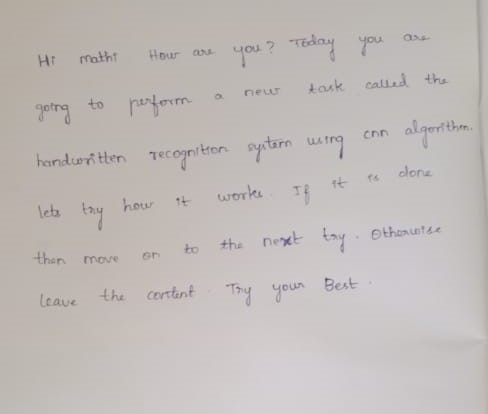 Hi mathi How are you? Today you are
going to perform a new task called the
handwritten recognition system using cnn algorithm.
lets try how it works. If it is done
then move on to the next try. Otherwise
leave the content. Try your Best.